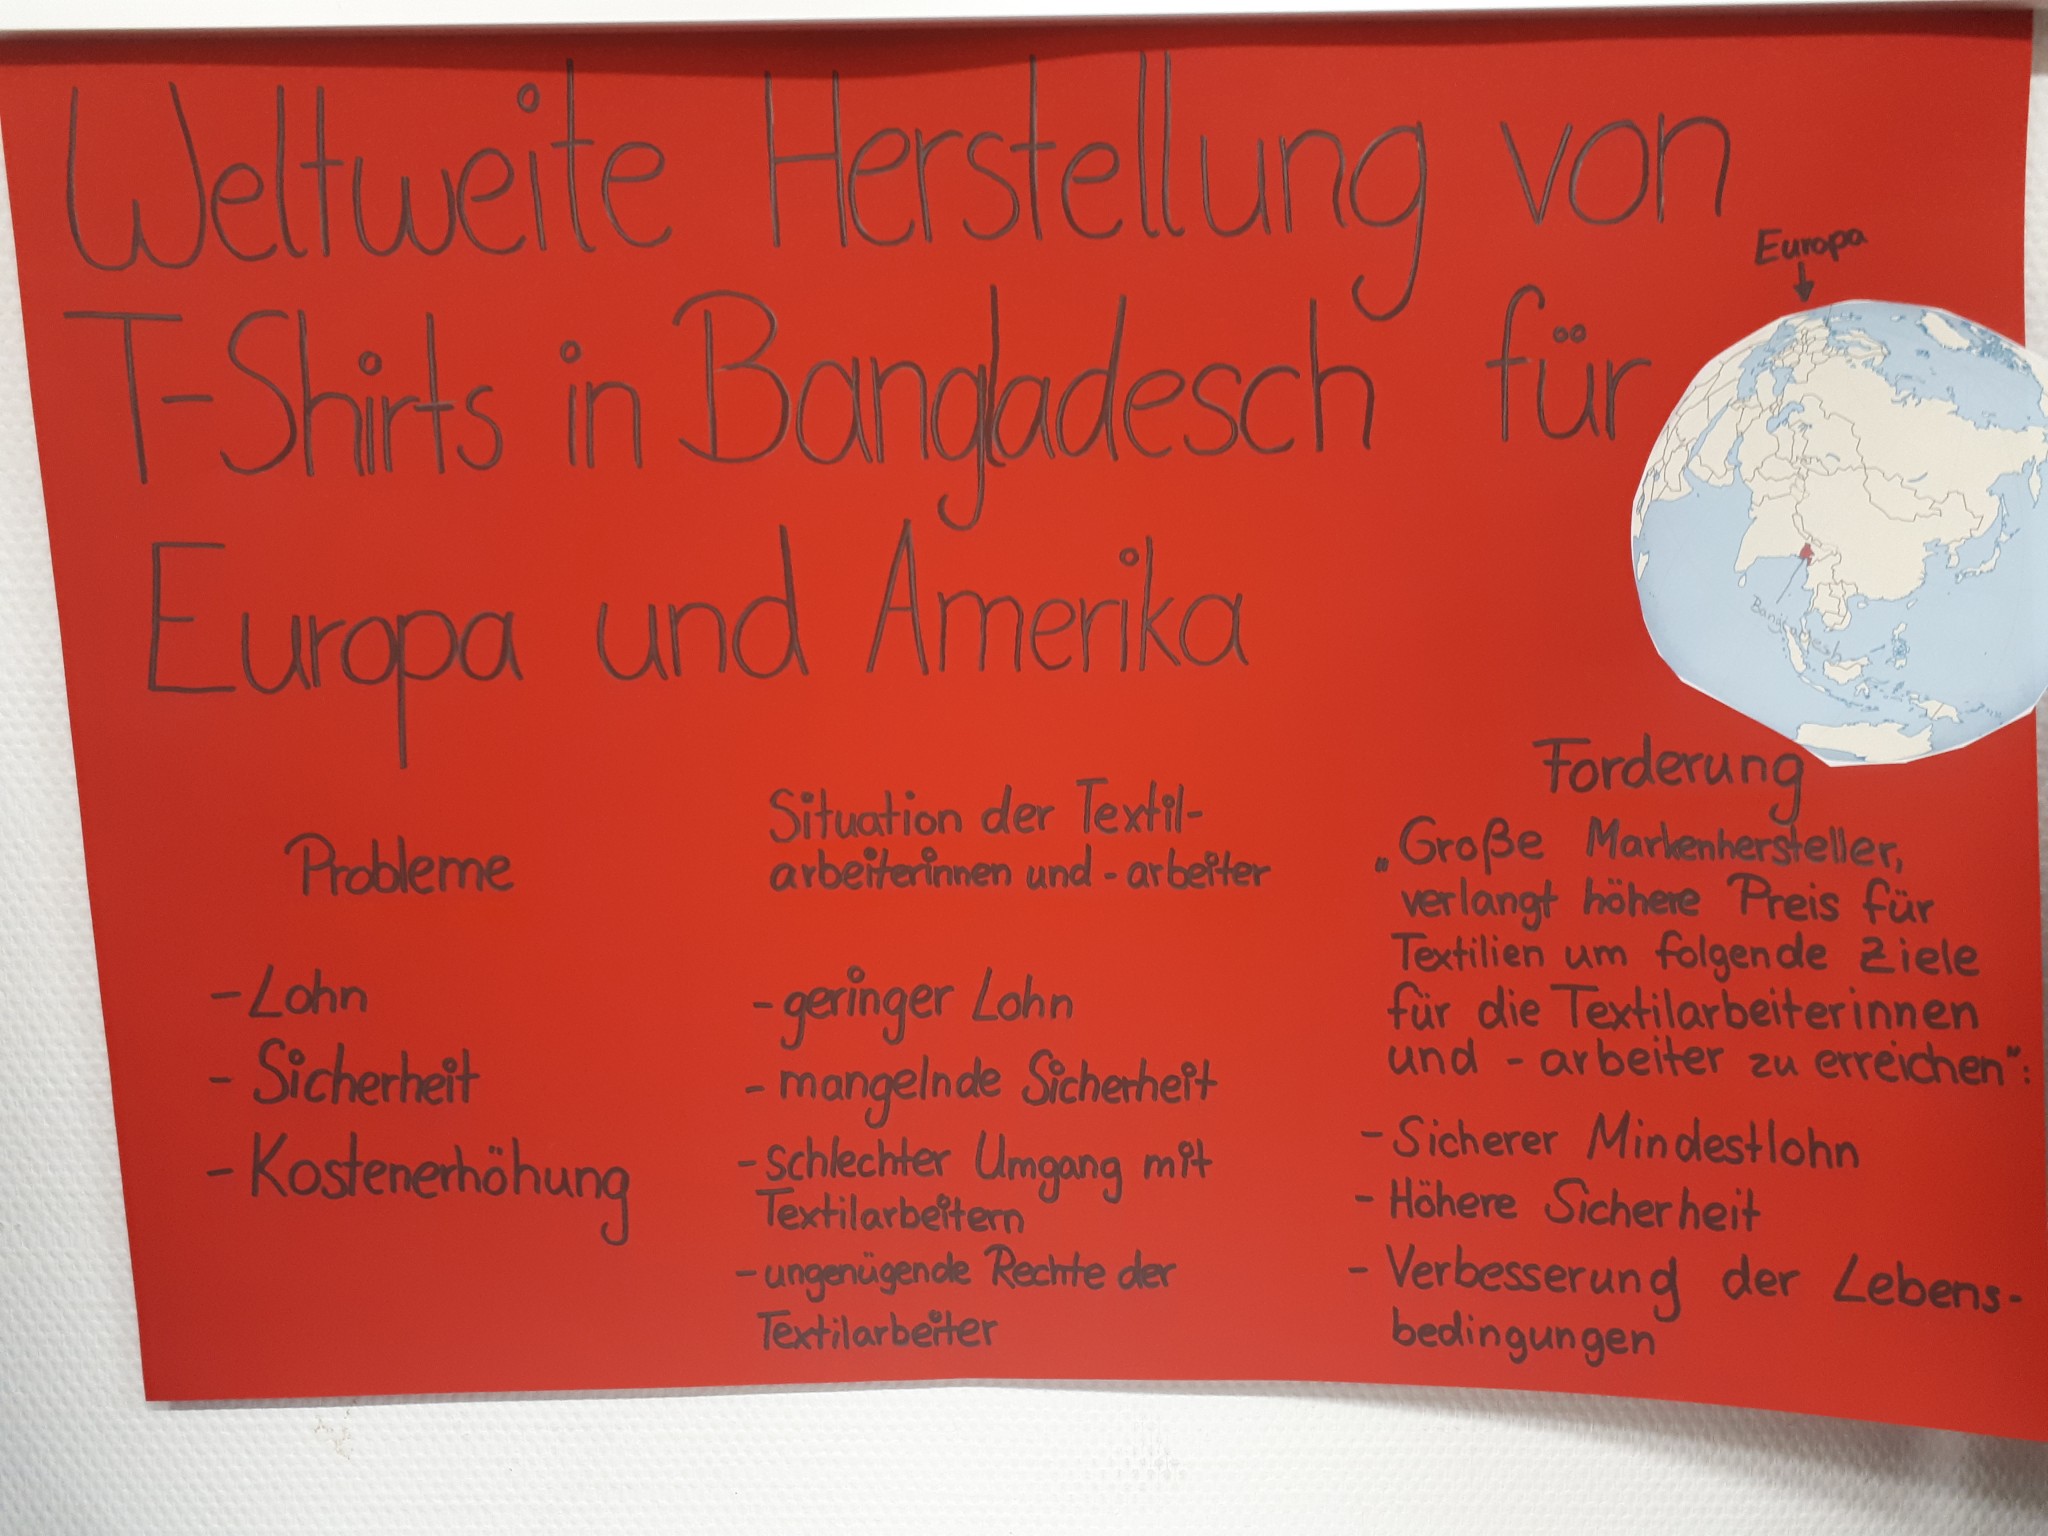 Weltweite Herstellung von
T-Shirts in Bangladesch für
Europa und Amerika
Europa
Bangladesh
Probleme
- Lohn
- Sicherheit
- Kostenerhöhung
Situation der Textil-
arbeiterinnen und - arbeiter
- geringer Lohn
- mangelnde Sicherheit
- schlechter Umgang mit
Textilarbeitern
- ungenügende Rechte der
Textilarbeiter
Forderung
„Große Markenhersteller,
verlangt höhere Preis für
Textilien um folgende Ziele
für die Textilarbeiterinnen
und - arbeiter zu erreichen":
- Sicherer Mindestlohn
- Höhere Sicherheit
- Verbesserung der Lebens-
bedingungen